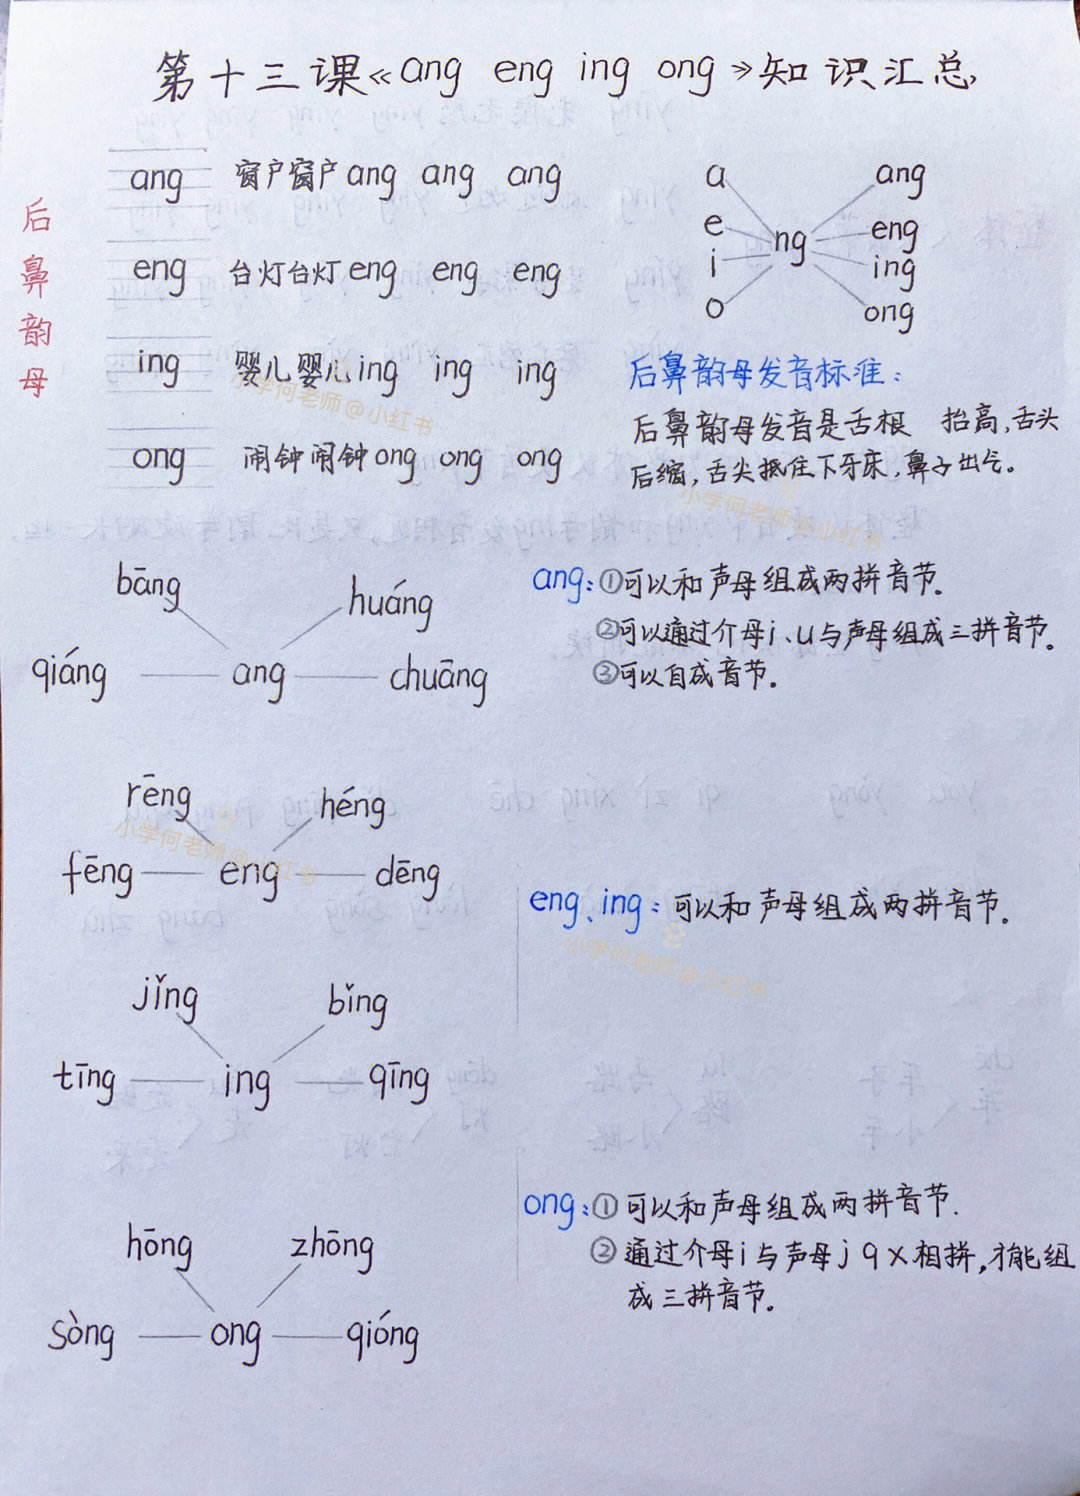 第十三课《ang eng ing ong》知识汇总
后鼻韵母
ang 窗户窗户ang ang ang
eng 台灯台灯eng eng eng
ing 婴儿婴儿ing ing ing
ong 闹钟闹钟ong ong ong
a ang
e ng eng
i ing
o ong
后鼻韵母发音标准:
后鼻韵母发音是舌根 抬高,舌头
后缩,舌尖抵住下牙床,鼻子出气。
bāng huáng
qiáng ang chuāng
ang:①可以和声母组成两拼音节。
②可以通过介母i、u与声母组成三拼音节。
③可以自成音节。
rēng héng
fēng eng dēng
eng、ing:可以和声母组成两拼音节。
jǐng bǐng
tīng ing qīng
hōng zhōng
sòng ong qióng
ong:①可以和声母组成两拼音节.
②通过介母i与声母j q x相拼,才能组
成三拼音节。
小学何老师@小红书
小学何老师@小红书
小学何老师@小红书
小学何老师@小红书